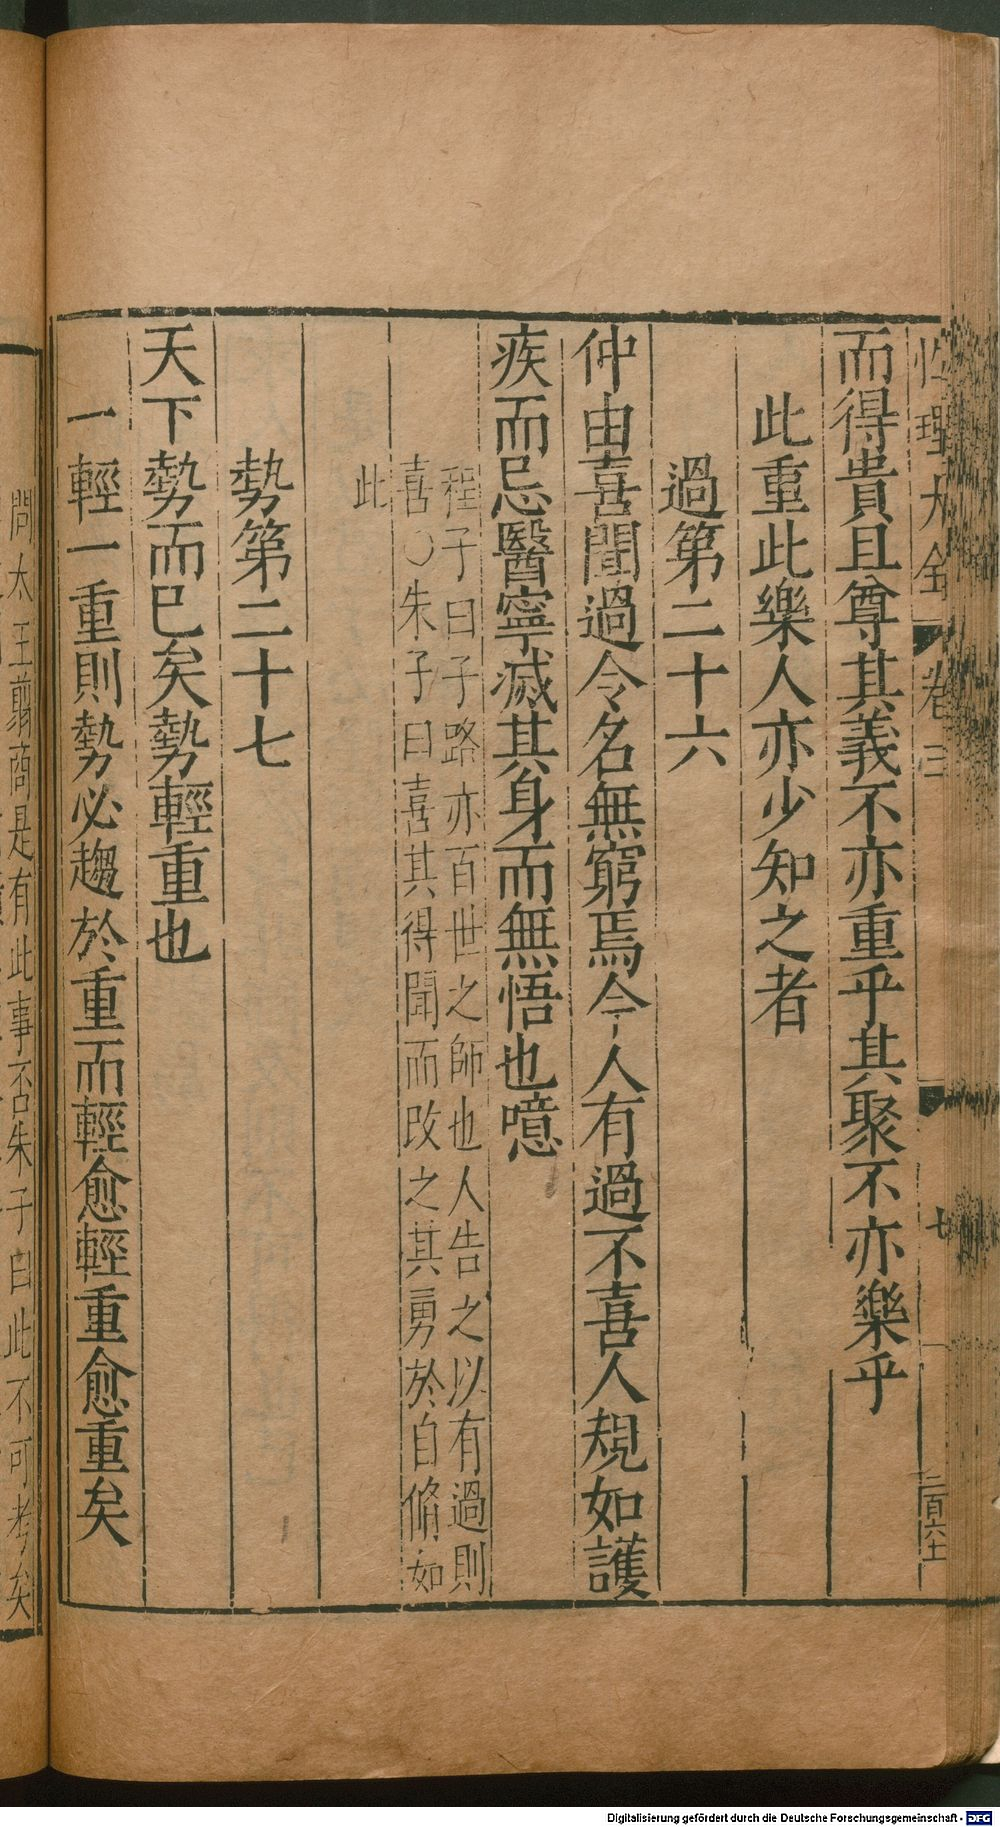 性理大全 卷三 七 二百六十
而得貴且尊其義不亦重乎其聚不亦樂乎
此重此樂人亦少知之者
過第二十六
仲由喜聞過令名無窮焉今人有過不喜人規如護
疾而忌醫寧滅其身而無悟也噫
程子曰子路亦百世之師也人告之以有過則
喜○朱子曰喜其得聞而改之其勇於自脩如
此
勢第二十七
天下勢而已矣勢輕重也
一輕一重則勢必趨於重而輕愈輕重愈重矣
問太王翦商是有此事否朱子曰此不可考矣
Digitalisierung gefördert durch die Deutsche Forschungsgemeinschaft - DFG